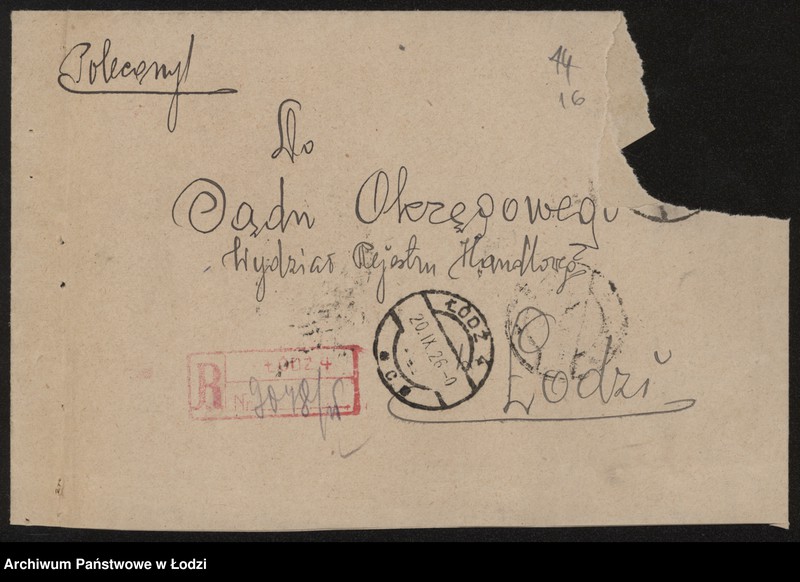 Polecony!
14
16
Do
Sądu Okręgowego
Wydział Rejestru Handlowego
w Łodzi
ŁÓDŹ 4
20.IX.26
R
ŁÓDŹ 4
Nr.
Archiwum Państwowe w Łodzi